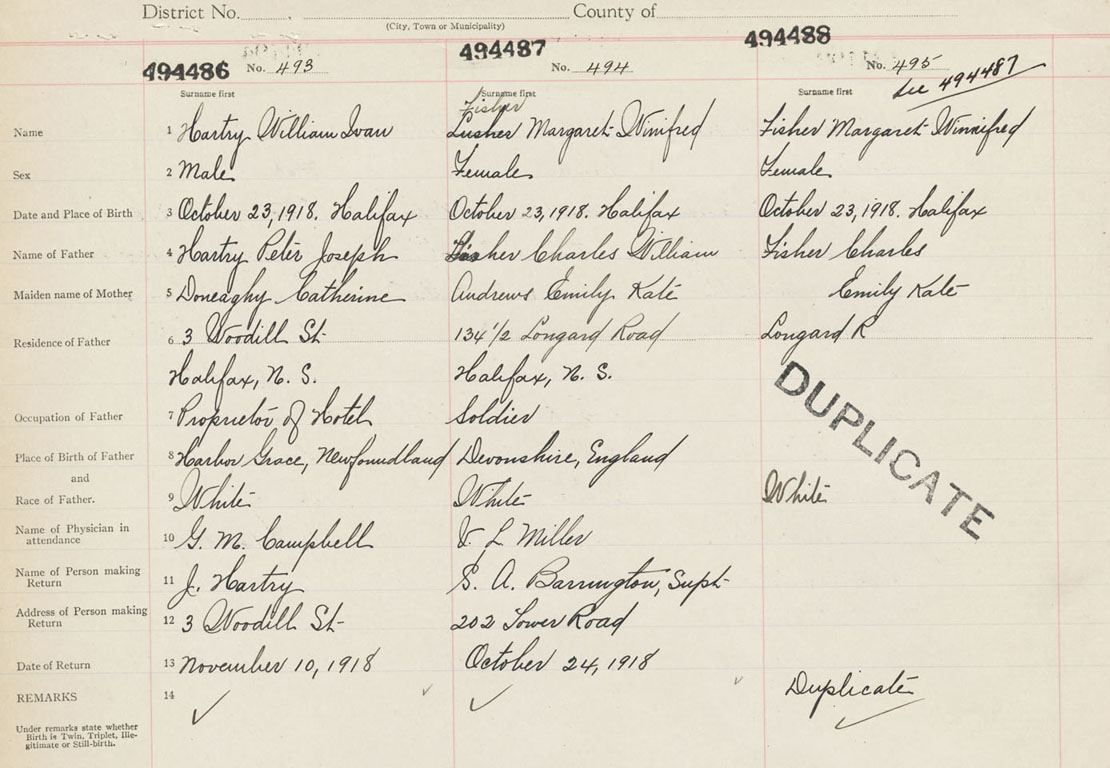 District No. County of
(City, Town or Municipality)
494486 No. 493 494487 No. 494 494488 No. 495
See 494487
Surname first Surname first Surname first
Fisher
Name 1 Hartry William Ivan Lusher Margaret Winifred Fisher Margaret Winnifred
Sex 2 Male Female Female
Date and Place of Birth 3 October 23, 1918. Halifax October 23, 1918. Halifax October 23, 1918. Halifax
Name of Father 4 Hartry Peter Joseph Fisher Charles William Fisher Charles
Maiden name of Mother 5 Doneaghy Catherine Andrews Emily Kate Emily Kate
Residence of Father 6 3 Woodill St 134 1/2 Longard Road Longard R
Halifax, N. S. Halifax, N. S.
DUPLICATE
Occupation of Father 7 Proprietor of Hotel Soldier
Place of Birth of Father 8 Harbor Grace, Newfoundland Devonshire, England
and
Race of Father. 9 White White White
Name of Physician in
attendance 10 G. M. Campbell V. L Miller
Name of Person making
Return 11 J. Hartry S. A. Barrington, Supt
Address of Person making
Return 12 3 Woodill St 202 Tower Road
Date of Return 13 November 10, 1918 October 24, 1918
REMARKS 14 Duplicate
Under remarks state whether
Birth is Twin, Triplet, Ille-
gitimate or Still-birth.